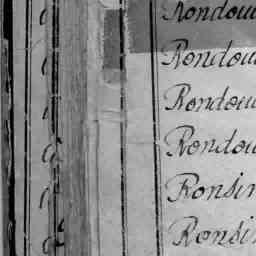 Rondou
Rondou
Rondou
Rondou
Ronsin
Ronsi